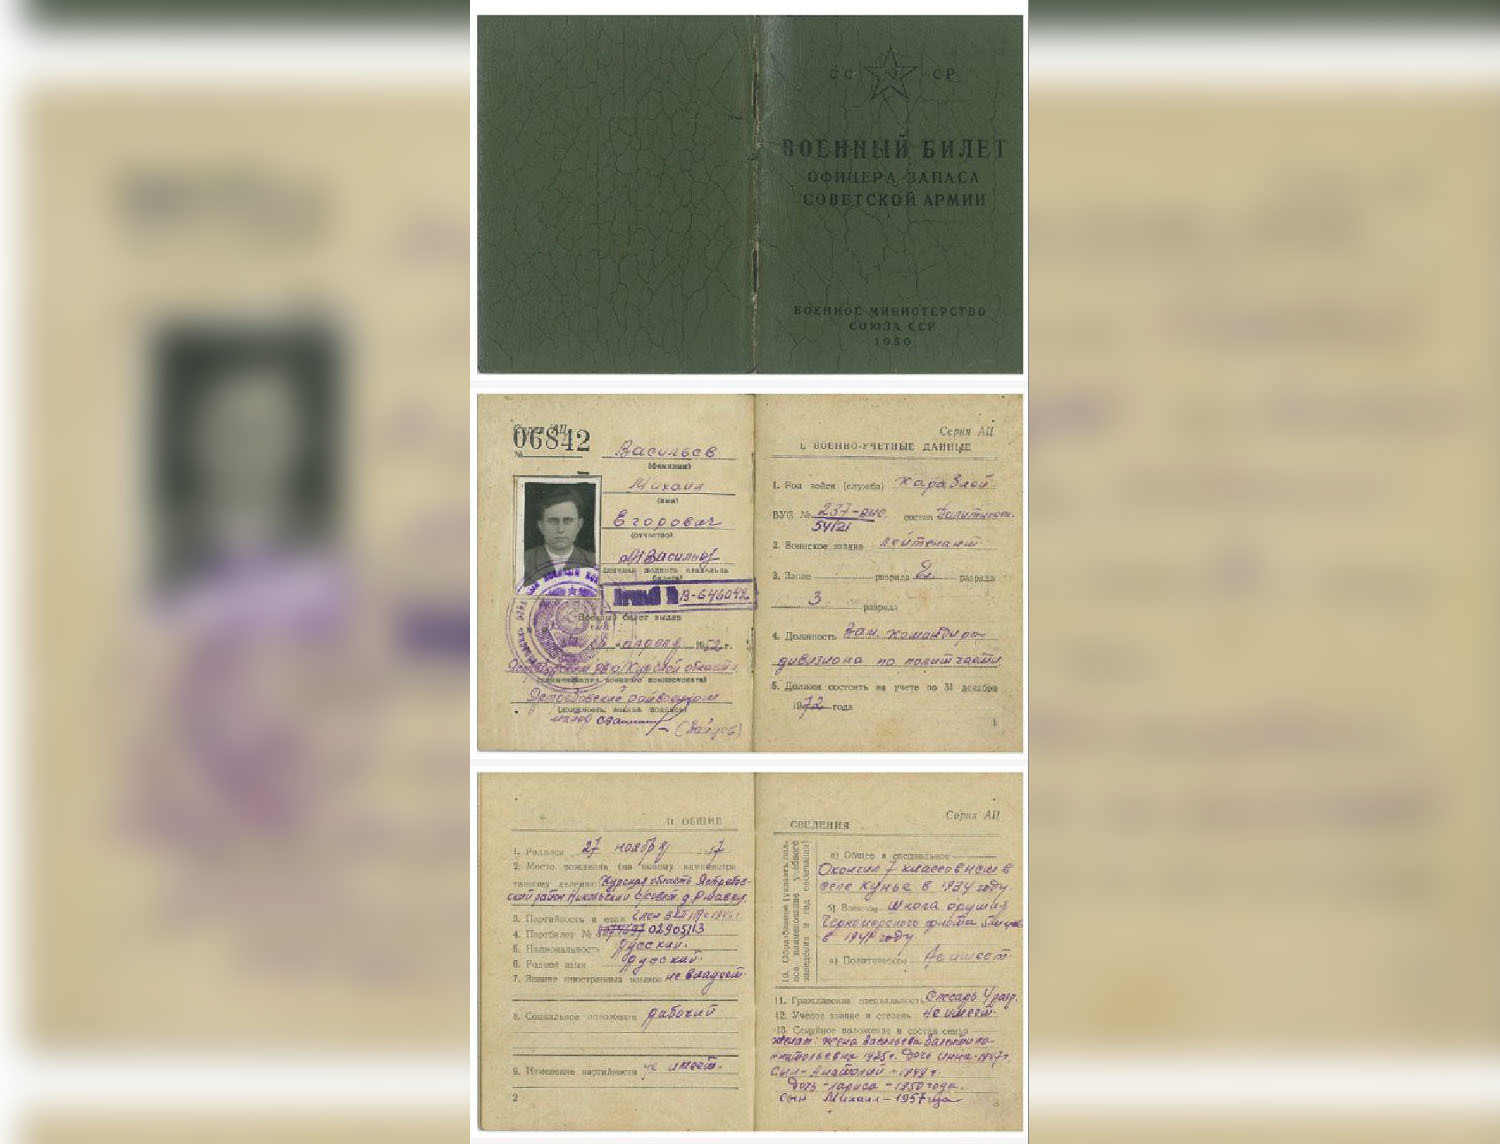 СС СР
ВОЕННЫЙ БИЛЕТ
ОФИЦЕРА ЗАПАСА
СОВЕТСКОЙ АРМИИ
ВОЕННОЕ МИНИСТЕРСТВО
СОЮЗА ССР
1950
Серия АЦ
06842
№
Васильев
(фамилия)
Михаил
(имя)
Егорович
(отчество)
(личная подпись владельца
билета)
Личный № В-646042
Военный билет выдан
апреля 1952 г.
Ястребовским Курской области
(наименование военного комиссариата)
Ястребовский райвоенком
(должность, звание, подпись)
майор
Серия АЦ
I. ВОЕННО-УЧЕТНЫЕ ДАННЫЕ
1. Род войск (служба)
ВУС № 237-вмс. состав Политический
54121
2. Воинское звание лейтенант
3. Запас разряда 2 разряда
3 разряда
4. Должность Зам. командира
дивизиона по политчасти
5. Должен состоять на учете по 31 декабря
1972 года
1
II. ОБЩИЕ
1. Родился 27 ноября 17
2. Место рождения (по новому администра-
тивному делению) Курская область Ястребов-
ский район Никольский с/совет д.
3. Партийность и стаж член
4. Партбилет № 02905113
5. Национальность русский.
6. Родной язык русский.
7. Знание иностранных языков не владеет.
8. Социальное положение рабочий
9. Изменение партийности не имеет.
2
Серия АЦ
СВЕДЕНИЯ
10. Образование (указать полное наименование учебного заведения и год окончания)
а) Общее и специальное
Окончил 7 классов в
селе Кунье в 1934 году.
б) Военное Школа оружия
Черноморского флота
в 1941 году
в) Политическое Не имеет.
11. Гражданская специальность Слесарь 4 разр.
12. Ученое звание и степень не имеет.
13. Семейное положение и состав семьи
женат: жена Васильева Валентина
Анатольевна 1925г. Дочь Инна-1947г.
Сын-Анатолий-1949г.
Дочь-Лариса-1950 года.
Сын Михаил-1957 года
3